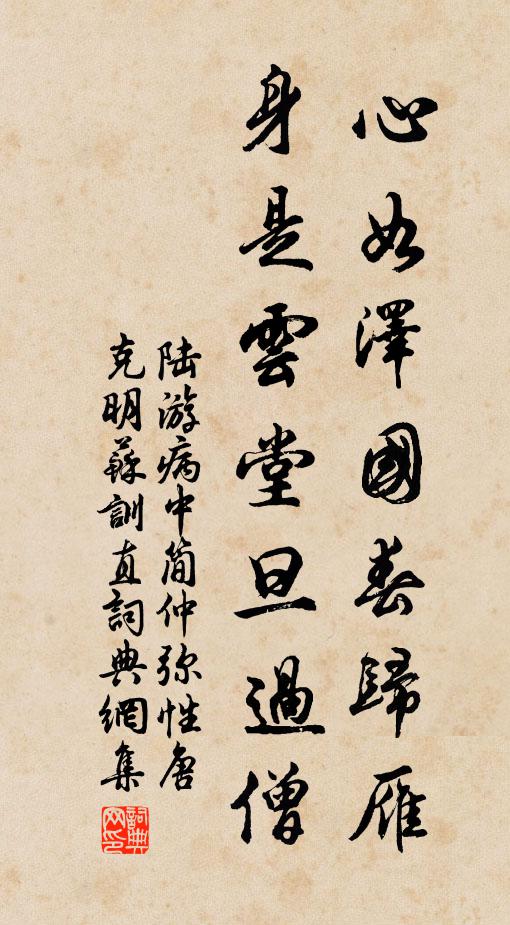 心如澤國春歸雁
身是雲堂旦過僧
陆游病中简仲弥性唐
克明蘇訓直詞典網集
詞典网印